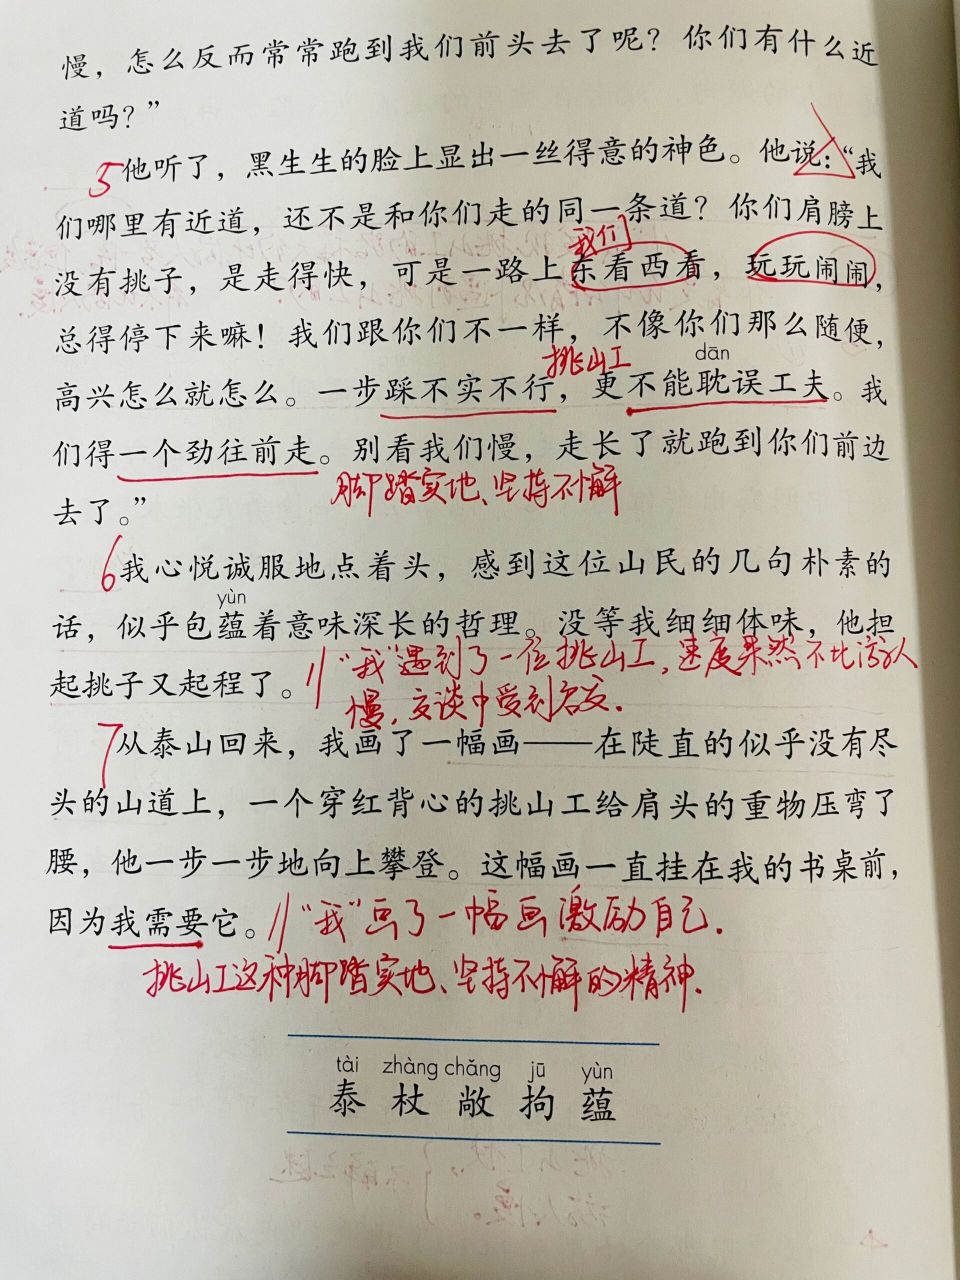 慢，怎么反而常常跑到我们前头去了呢？你们有什么近
道吗？”
5他听了，黑生生的脸上显出一丝得意的神色。他说：“我
们哪里有近道，还不是和你们走的同一条道？你们肩膀上
我们
没有挑子，是走得快，可是一路上东看西看，玩玩闹闹，
总得停下来嘛！我们跟你们不一样，不像你们那么随便，
挑山工
dān
高兴怎么就怎么。一步踩不实不行，更不能耽误工夫。我
们得一个劲往前走。别看我们慢，走长了就跑到你们前边
脚踏实地、坚持不懈
去了。”
6我心悦诚服地点着头，感到这位山民的几句朴素的
yùn
话，似乎包蕴着意味深长的哲理。没等我细细体味，他担
起挑子又起程了。
“我”遇到了一位挑山工，速度果然不比游人
慢，交谈中受到启发.
7从泰山回来，我画了一幅画——在陡直的似乎没有尽
头的山道上，一个穿红背心的挑山工给肩头的重物压弯了
腰，他一步一步地向上攀登。这幅画一直挂在我的书桌前，
因为我需要它。“我”画了一幅画激励自己.
挑山工这种脚踏实地、坚持不懈的精神.
tài zhàng chǎng jū yùn
泰 杖 敞 拘 蕴